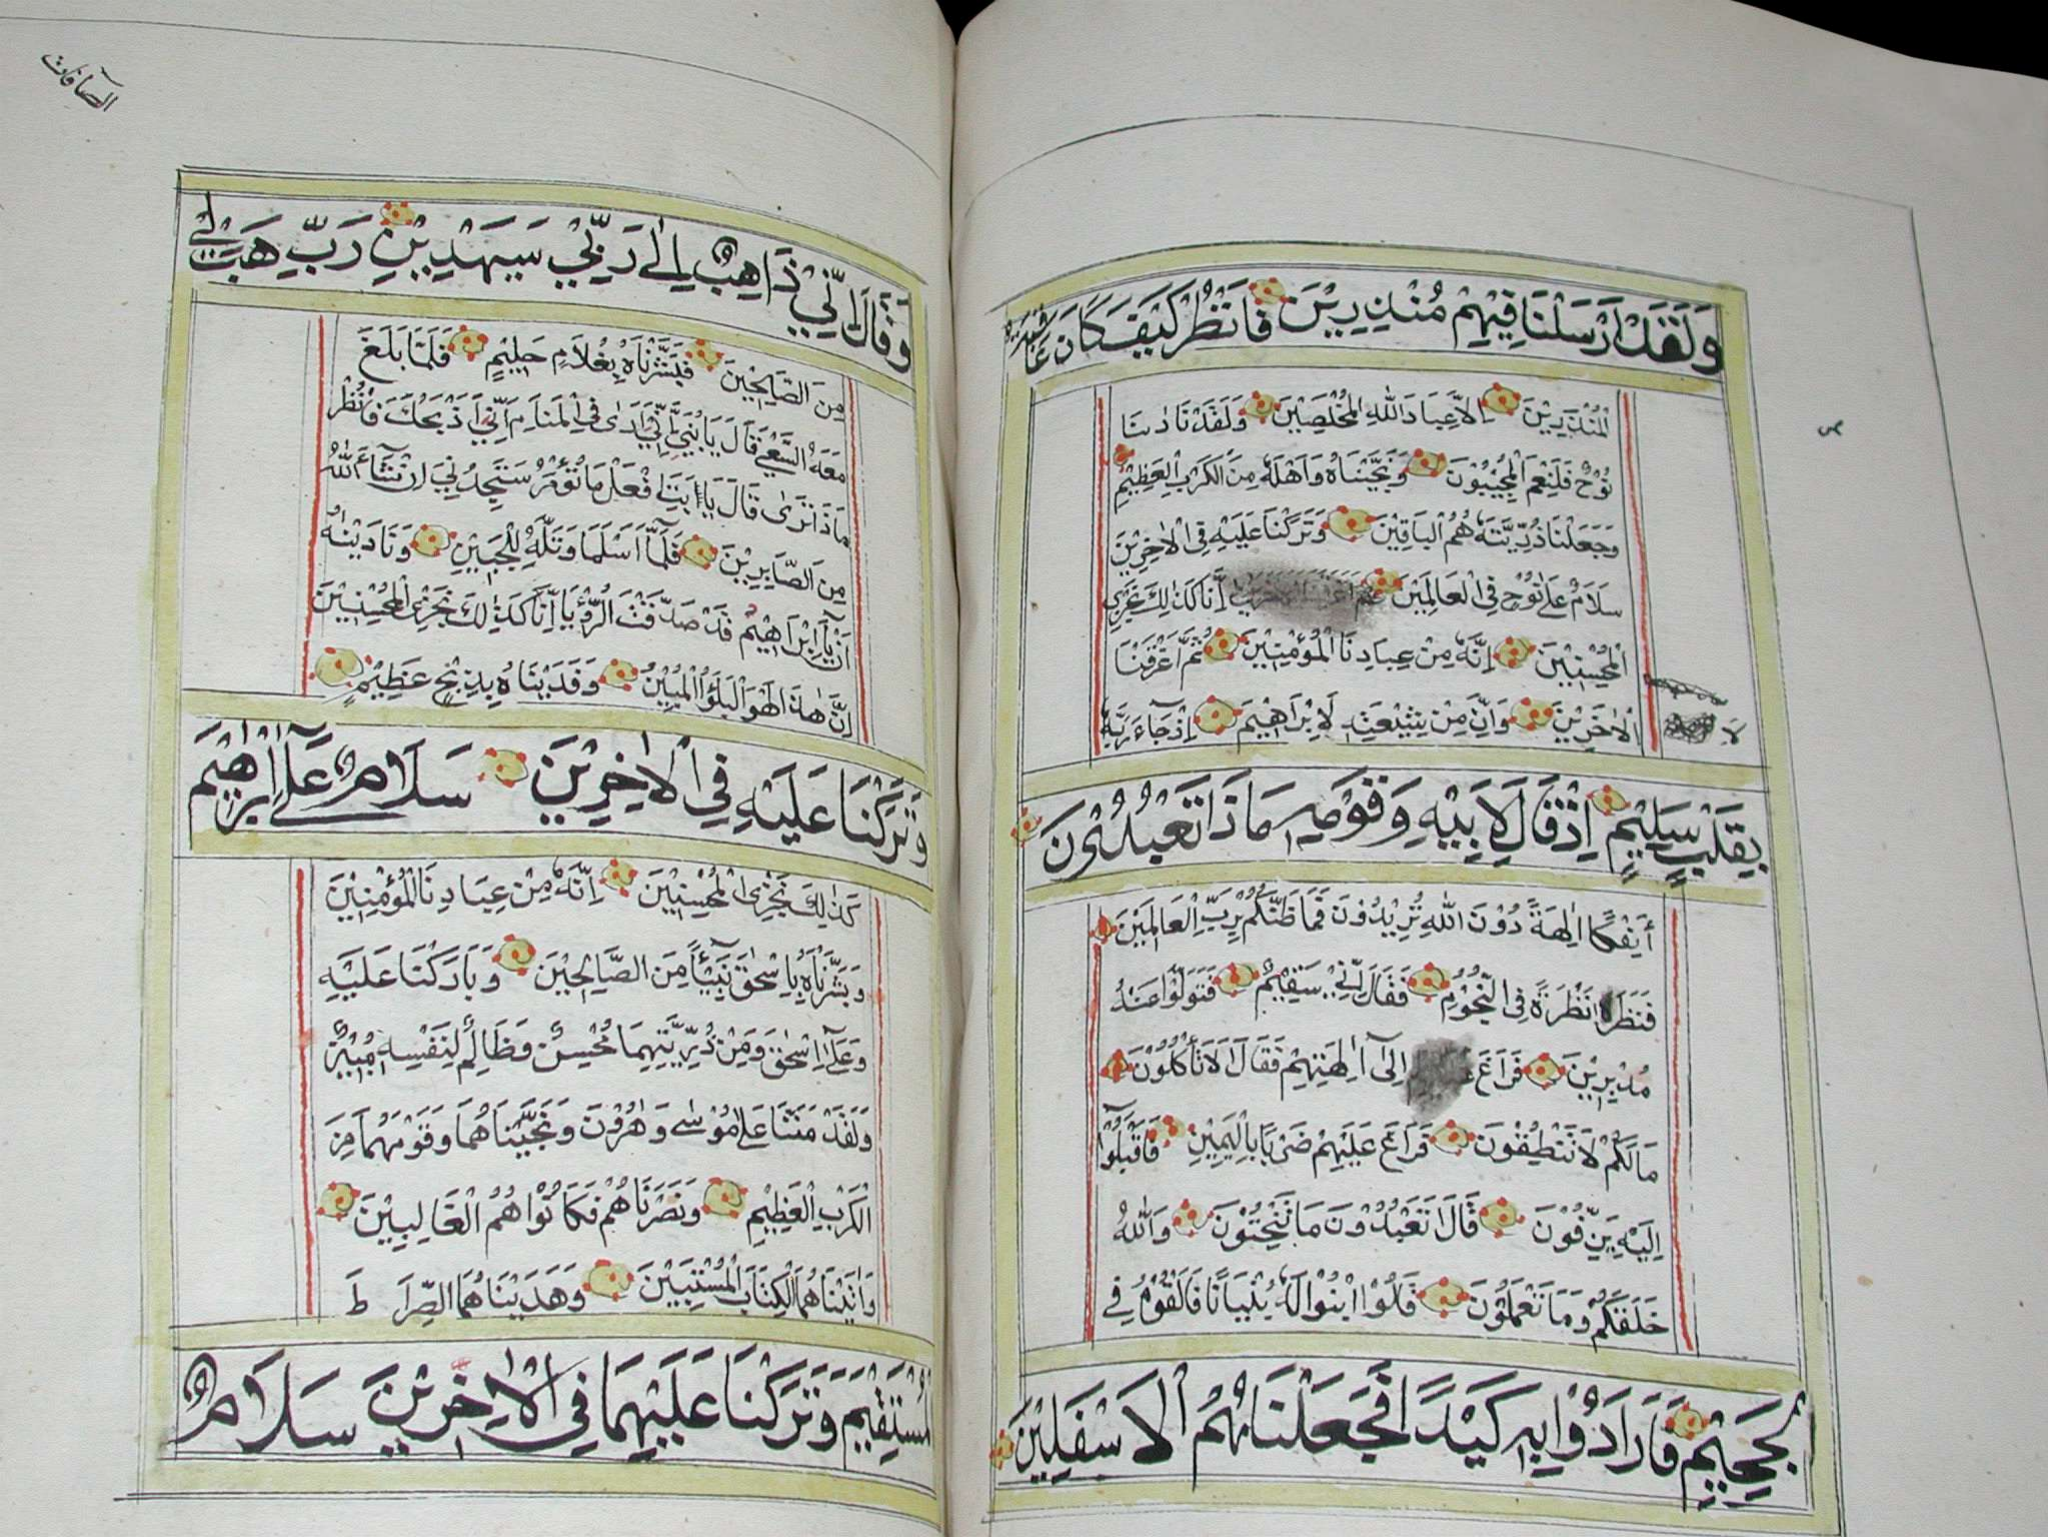 وَلَقَدْ اَرْسَلْنَا فِيهِمْ مُنْذِرِيْنَ فَانْظُرْ كَيْفَ كَانَ عَاقِبَةُ
الْمُنْذَرِيْنَ اِلَّا عِبَادَ اللّٰهِ الْمُخْلَصِيْنَ وَلَقَدْ نَادٰىنَا
نُوْحٌ فَلَنِعْمَ الْمُجِيْبُوْنَ وَنَجَّيْنَاهُ وَاَهْلَهٗ مِنَ الْكَرْبِ الْعَظِيْمِ
وَجَعَلْنَا ذُرِّيَّتَهٗ هُمُ الْبَاقِيْنَ وَتَرَكْنَا عَلَيْهِ فِي الْاٰخِرِيْنَ
سَلَامٌ عَلٰى نُوْحٍ فِي الْعَالَمِيْنَ اِنَّا كَذٰلِكَ نَجْزِي
الْمُحْسِنِيْنَ اِنَّهٗ مِنْ عِبَادِنَا الْمُؤْمِنِيْنَ ثُمَّ اَغْرَقْنَا
الْاٰخَرِيْنَ وَاِنَّ مِنْ شِيْعَتِهٖ لَاِبْرَاهِيْمَ اِذْ جَاءَ رَبَّهٗ
لا
بِقَلْبٍ سَلِيْمٍ اِذْ قَالَ لِاَبِيْهِ وَقَوْمِهٖ مَاذَا تَعْبُدُوْنَ
أَئِفْكًا اٰلِهَةً دُوْنَ اللّٰهِ تُرِيْدُوْنَ فَمَا ظَنُّكُمْ بِرَبِّ الْعَالَمِيْنَ
فَنَظَرَ نَظْرَةً فِي النُّجُوْمِ فَقَالَ اِنِّيْ سَقِيْمٌ فَتَوَلَّوْا عَنْهُ
مُدْبِرِيْنَ فَرَاغَ اِلٰٓى اٰلِهَتِهِمْ فَقَالَ اَلَا تَأْكُلُوْنَ
مَا لَكُمْ لَا تَنْطِقُوْنَ فَرَاغَ عَلَيْهِمْ ضَرْبًا بِالْيَمِيْنِ فَاَقْبَلُوْٓا
اِلَيْهِ يَزِفُّوْنَ قَالَ اَتَعْبُدُوْنَ مَا تَنْحِتُوْنَ وَاللّٰهُ
خَلَقَكُمْ وَمَا تَعْمَلُوْنَ قَالُوا ابْنُوْا لَهٗ بُنْيَانًا فَاَلْقُوْهُ فِي
الْجَحِيْمِ فَاَرَادُوْا بِهٖ كَيْدًا فَجَعَلْنَاهُمُ الْاَسْفَلِيْنَ
الصآفات
وَقَالَ اِنِّيْ ذَاهِبٌ اِلٰى رَبِّيْ سَيَهْدِيْنِ رَبِّ هَبْ لِيْ
مِنَ الصَّالِحِيْنَ فَبَشَّرْنَاهُ بِغُلَامٍ حَلِيْمٍ فَلَمَّا بَلَغَ
مَعَهُ السَّعْيَ قَالَ يَا بُنَيَّ اِنِّيْ اَرٰى فِي الْمَنَامِ اَنِّيْ اَذْبَحُكَ فَانْظُرْ
مَاذَا تَرٰى قَالَ يَا اَبَتِ افْعَلْ مَا تُؤْمَرُ سَتَجِدُنِيْ اِنْ شَآءَ اللّٰهُ
مِنَ الصَّابِرِيْنَ فَلَمَّآ اَسْلَمَا وَتَلَّهٗ لِلْجَبِيْنِ وَنَادَيْنٰهُ
اَنْ يَآ اِبْرَاهِيْمُ قَدْ صَدَّقْتَ الرُّؤْيَا اِنَّا كَذٰلِكَ نَجْزِي الْمُحْسِنِيْنَ
اِنَّ هٰذَا لَهُوَ الْبَلَؤُا الْمُبِيْنُ وَفَدَيْنَاهُ بِذِبْحٍ عَظِيْمٍ
وَتَرَكْنَا عَلَيْهِ فِي الْاٰخِرِيْنَ سَلَامٌ عَلٰٓى اِبْرٰهِيْمَ
كَذٰلِكَ نَجْزِي الْمُحْسِنِيْنَ اِنَّهٗ مِنْ عِبَادِنَا الْمُؤْمِنِيْنَ
وَبَشَّرْنَاهُ بِاِسْحٰقَ نَبِيًّا مِنَ الصَّالِحِيْنَ وَبَارَكْنَا عَلَيْهِ
وَعَلٰٓى اِسْحٰقَ وَمِنْ ذُرِّيَّتِهِمَا مُحْسِنٌ وَظَالِمٌ لِنَفْسِهٖ مُبِيْنٌ
وَلَقَدْ مَنَنَّا عَلٰى مُوْسٰى وَهٰرُوْنَ وَنَجَّيْنَاهُمَا وَقَوْمَهُمَا مِنَ
الْكَرْبِ الْعَظِيْمِ وَنَصَرْنَاهُمْ فَكَانُوْا هُمُ الْغَالِبِيْنَ
وَاٰتَيْنَاهُمَا الْكِتَابَ الْمُسْتَبِيْنَ وَهَدَيْنَاهُمَا الصِّرَاطَ
الْمُسْتَقِيْمَ وَتَرَكْنَا عَلَيْهِمَا فِي الْاٰخِرِيْنَ سَلَامٌ